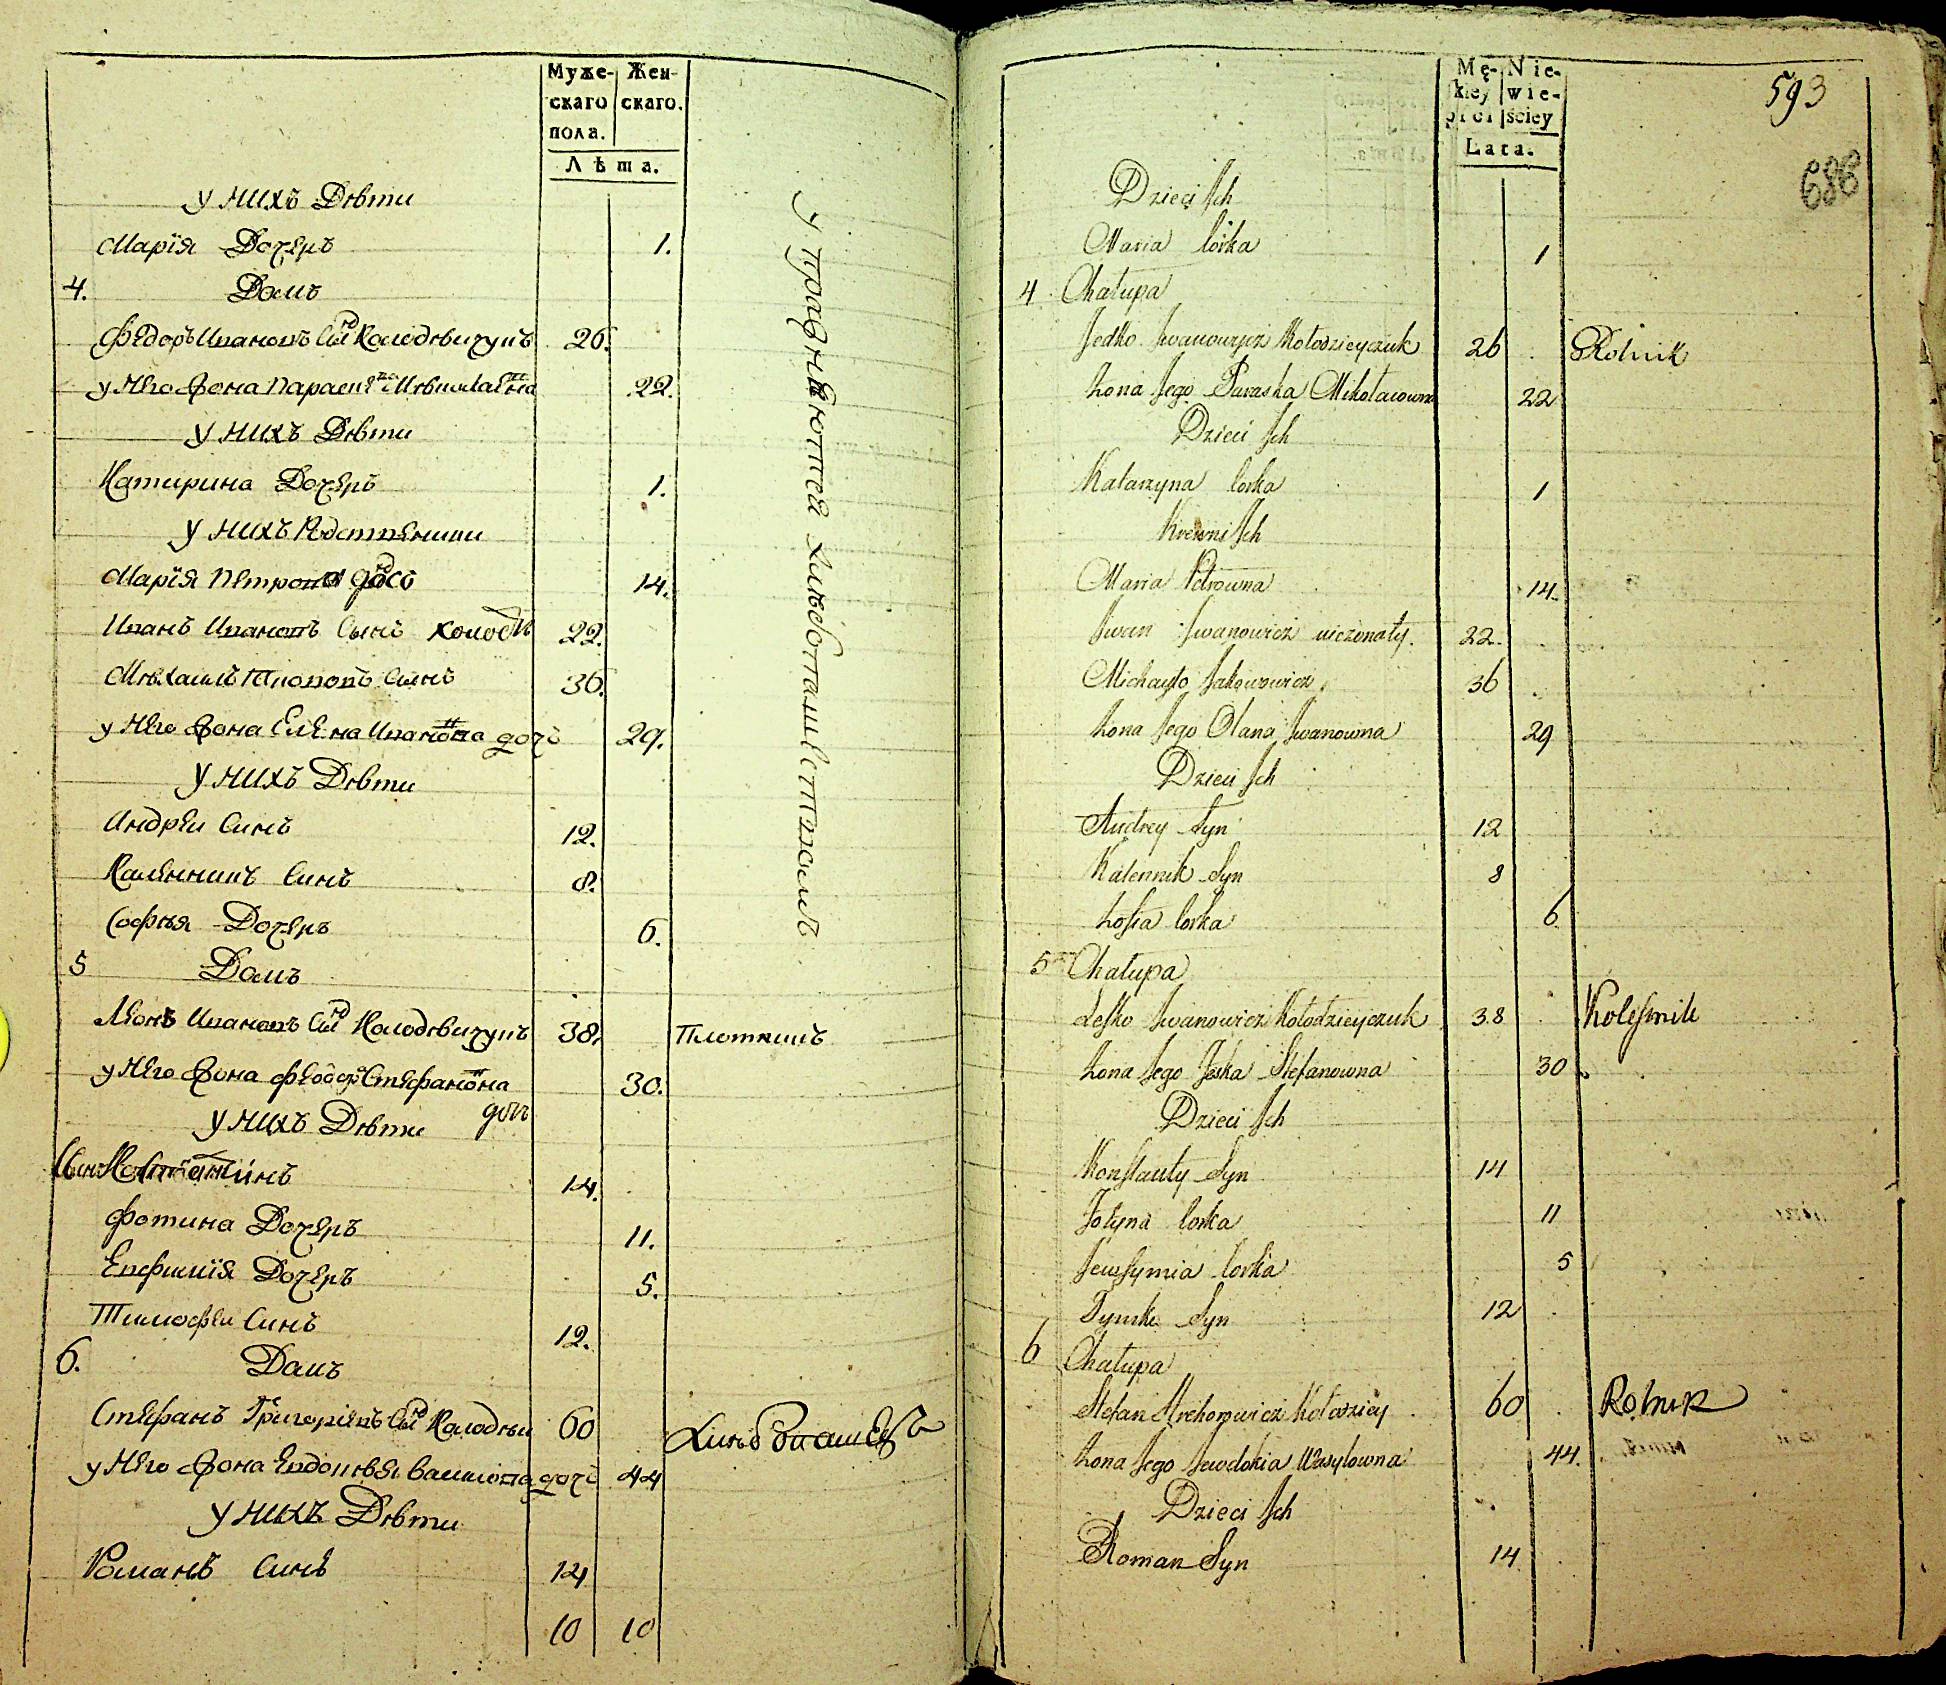 Муже- Жен-
скаго скаго.
пола.
Лѣта.
у нихъ Дѣти
Марїя Дочеръ 1.
4. Домъ
Федоръ Ивановъ Сынъ Колодѣичукъ 26.
у него жона Параскева Миколаевна 22.
у нихъ Дѣти
Катирина Дочеръ 1.
у нихъ Родственники
Марїя Петрова дочь 14.
Иванъ Ивановъ Сынъ холостъ 22.
Михаилъ Яковов Сынъ 36.
у него жона Елена Иванова дочь 29.
у нихъ Дѣти
Андреи Синъ 12.
Каленникъ Синъ 8.
Софья Дочеръ 6.
5 Домъ
Леонъ Ивановъ Сынъ Колодѣичукъ 38. Плотникъ
у него жона Феодос Стефанова 30.
дочь
у нихъ Дѣти
Синъ Костантинъ 14.
Фотина Дочеръ 11.
Евфимїя Дочеръ 5.
Тимофеи Синъ 12.
6. Домъ
Стефанъ Григорїевъ Сынъ Колодѣи 60 Хлѣбопашецъ
у него жона Евдокѣя Василова дочь 44
у нихъ Дѣти
Романъ Синъ 14
10 10
упражняются хлѣбопашествомъ
Mę- Nie-
kiey wie-
płci ściey
Lata.
593
Dzieci Ich
Maria Córka 1
4 Chałupa
Fedko Iwanowicz Kołodzieyczuk 26 Rolnik
Żona Jego Paraska Mikołaiowna 22
Dzieci Ich
Katarzyna Corka 1
Krewni Ich
Maria Petrowna 14.
Iwan Iwanowicz nieżonaty. 22.
Michayło Jakowowicz 36
Żona Jego Olana Iwanowna 29
Dzieci Ich
Andrey Syn 12
Kalennik Syn 8
Zofia Corka 6
5 Chałupa
Lesko Iwanowicz Kołodzieyczuk 38 Kolesnik
Żona Jego Feska Stefanowna 30
Dzieci Ich
Konstanty Syn 14
Fotyna Corka 11
Jewfymia Corka 5
Tymko Syn 12
6 Chałupa
Stefan Hrehorowicz Kołodziey 60 Rolnik
Żona Jego Jewdokia Wasylowna 44.
Dzieci Ich
Roman Syn 14